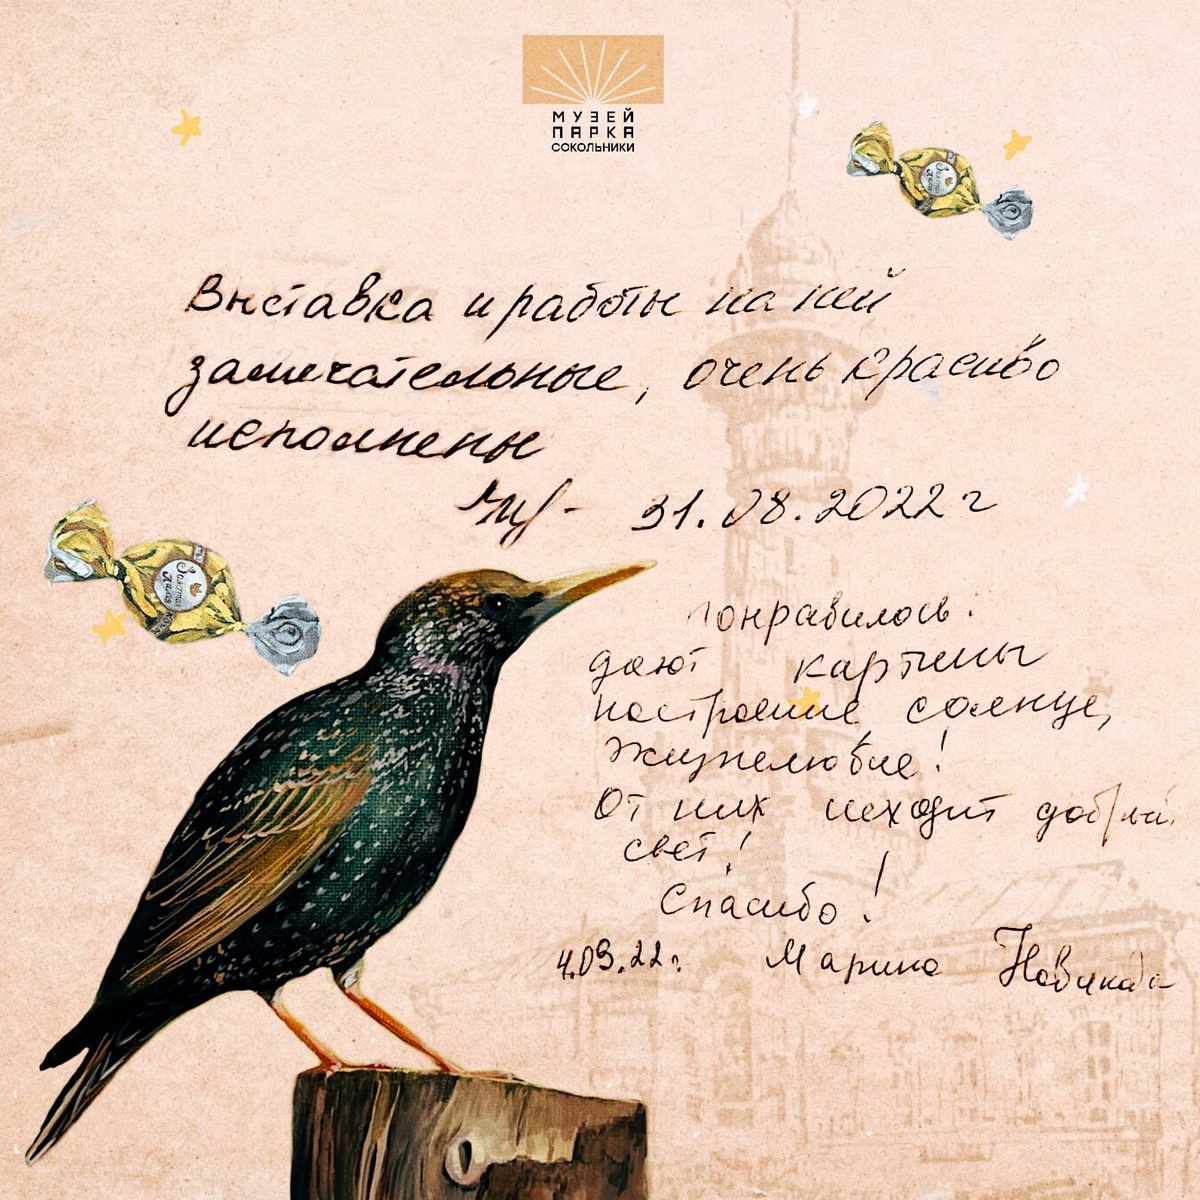 МУЗЕЙ
ПАРКА
СОКОЛЬНИКИ
Золотая
лилия
Выставка и работы на ней
замечательные, очень красиво
исполнены
31.08.2022 г
Золотая
лилия
понравилось.
дают картины
настроение солнце,
жизнелюбие!
От них исходит добрый
свет!
Спасибо!
4.09.22г. Марина